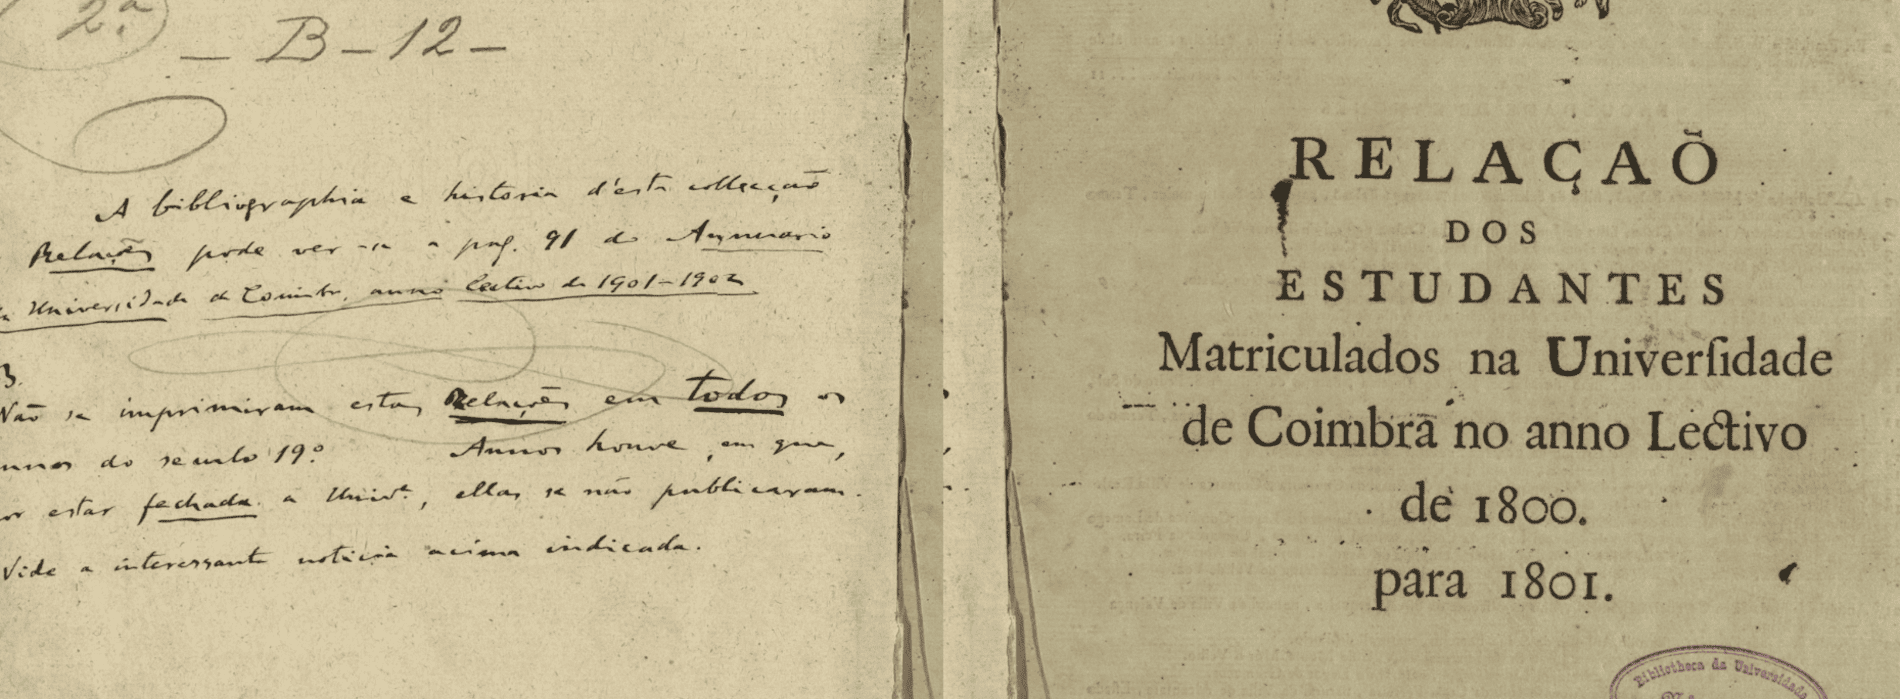 2ª
— B — 12 —
A bibliographia e historia d'esta collecção
Relações pode ver-se a pag. 91 do Annuario
da Universidade de Coimbra, anno lectivo de 1901-1902
B.
Não se imprimiram estas Relações em todos os
annos do seculo 19º Annos houve, em que,
por estar fechada a Univ.e, ellas se não publicaram.
Vide a interessante noticia acima indicada.
RELAÇAÕ
DOS
ESTUDANTES
Matriculados na Univerſidade
de Coimbra no anno Lectivo
de 1800.
para 1801.
Bibliotheca da Universidade